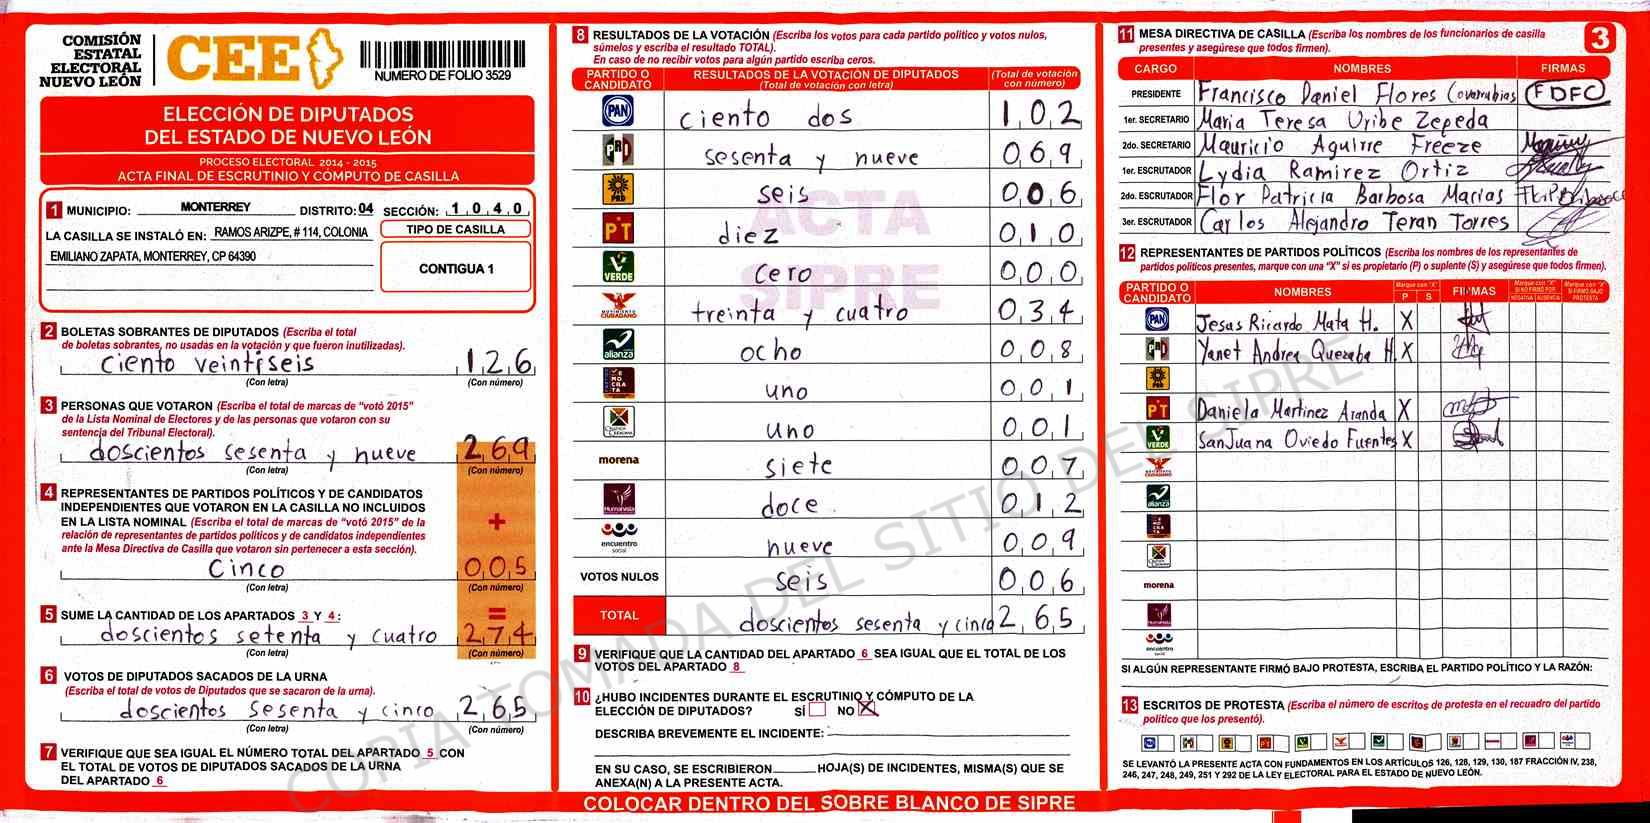 COMISIÓN
ESTATAL
ELECTORAL
NUEVO LEÓN
CEE
NUMERO DE FOLIO 3529
ELECCIÓN DE DIPUTADOS
DEL ESTADO DE NUEVO LEÓN
PROCESO ELECTORAL 2014 - 2015
ACTA FINAL DE ESCRUTINIO Y CÓMPUTO DE CASILLA
1 MUNICIPIO: MONTERREY DISTRITO: 04 SECCIÓN: 1 0 4 0
LA CASILLA SE INSTALÓ EN: RAMOS ARIZPE, # 114, COLONIA
EMILIANO ZAPATA, MONTERREY, CP 64390
TIPO DE CASILLA
CONTIGUA 1
2 BOLETAS SOBRANTES DE DIPUTADOS (Escriba el total
de boletas sobrantes, no usadas en la votación y que fueron inutilizadas).
ciento veintiseis 1 2 6
(Con letra) (Con número)
3 PERSONAS QUE VOTARON (Escriba el total de marcas de "votó 2015"
de la Lista Nominal de Electores y de las personas que votaron con su
sentencia del Tribunal Electoral).
doscientos sesenta y nueve 2 6 9
(Con letra) (Con número)
4 REPRESENTANTES DE PARTIDOS POLÍTICOS Y DE CANDIDATOS
INDEPENDIENTES QUE VOTARON EN LA CASILLA NO INCLUIDOS
EN LA LISTA NOMINAL (Escriba el total de marcas de "votó 2015" de la
relación de representantes de partidos políticos y de candidatos independientes
ante la Mesa Directiva de Casilla que votaron sin pertenecer a esta sección).
+
cinco 0 0 5
(Con letra) (Con número)
5 SUME LA CANTIDAD DE LOS APARTADOS 3 Y 4: =
doscientos setenta y cuatro 2 7 4
(Con letra) (Con número)
6 VOTOS DE DIPUTADOS SACADOS DE LA URNA
(Escriba el total de votos de Diputados que se sacaron de la urna).
doscientos sesenta y cinco 2 6 5
(Con letra) (Con número)
7 VERIFIQUE QUE SEA IGUAL EL NÚMERO TOTAL DEL APARTADO 5 CON
EL TOTAL DE VOTOS DE DIPUTADOS SACADOS DE LA URNA
DEL APARTADO 6
8 RESULTADOS DE LA VOTACIÓN (Escriba los votos para cada partido político y votos nulos,
súmelos y escriba el resultado TOTAL).
En caso de no recibir votos para algún partido escriba ceros.
PARTIDO O CANDIDATO RESULTADOS DE LA VOTACIÓN DE DIPUTADOS (Total de votación con letra) (Total de votación con número)
PAN ciento dos 1 0 2
PRD sesenta y nueve 0 6 9
PRD seis 0 0 6
PT diez 0 1 0
VERDE cero 0 0 0
MOVIMIENTO CIUDADANO treinta y cuatro 0 3 4
alianza ocho 0 0 8
DEMOCRATA uno 0 0 1
uno 0 0 1
morena siete 0 0 7
Humanista doce 0 1 2
encuentro social nueve 0 0 9
VOTOS NULOS seis 0 0 6
TOTAL doscientos sesenta y cinco 2 6 5
ACTA
SIPRE
9 VERIFIQUE QUE LA CANTIDAD DEL APARTADO 6 SEA IGUAL QUE EL TOTAL DE LOS
VOTOS DEL APARTADO 8
10 ¿HUBO INCIDENTES DURANTE EL ESCRUTINIO Y CÓMPUTO DE LA
ELECCIÓN DE DIPUTADOS? SÍ NO X
DESCRIBA BREVEMENTE EL INCIDENTE:
EN SU CASO, SE ESCRIBIERON HOJA(S) DE INCIDENTES, MISMA(S) QUE SE
ANEXA(N) A LA PRESENTE ACTA.
COLOCAR DENTRO DEL SOBRE BLANCO DE SIPRE
11 MESA DIRECTIVA DE CASILLA (Escriba los nombres de los funcionarios de casilla
presentes y asegúrese que todos firmen).
3
CARGO NOMBRES FIRMAS
PRESIDENTE Francisco Daniel Flores Covarrubias FDFC
1er. SECRETARIO Maria Teresa Uribe Zepeda
2do. SECRETARIO Mauricio Aguirre Freeze
1er. ESCRUTADOR Lydia Ramirez Ortiz
2do. ESCRUTADOR Flor Patricia Barbosa Macias
3er. ESCRUTADOR Carlos Alejandro Teran Torres
12 REPRESENTANTES DE PARTIDOS POLÍTICOS (Escriba los nombres de los representantes de
partidos políticos presentes, marque con una "X" si es propietario (P) o suplente (S) y asegúrese que todos firmen).
PARTIDO O CANDIDATO NOMBRES Marque con "X" P S FIRMAS Marque con "X" SI NO FIRMÓ POR NEGATIVA AUSENCIA Marque con "X" SI FIRMÓ BAJO PROTESTA
PAN Jesas Ricardo Mata H. X
PRD Yanet Andrea Quezaba H. X
PRD
PT Daniela Martinez Aranda X
VERDE SanJuana Oviedo Fuentes X
MOVIMIENTO CIUDADANO
alianza
morena
encuentro social
SI ALGÚN REPRESENTANTE FIRMÓ BAJO PROTESTA, ESCRIBA EL PARTIDO POLÍTICO Y LA RAZÓN:
13 ESCRITOS DE PROTESTA (Escriba el número de escritos de protesta en el recuadro del partido
político que los presentó).
SE LEVANTÓ LA PRESENTE ACTA CON FUNDAMENTOS EN LOS ARTÍCULOS 126, 128, 129, 130, 187 FRACCIÓN IV, 238,
246, 247, 248, 249, 251 Y 292 DE LA LEY ELECTORAL PARA EL ESTADO DE NUEVO LEÓN.
COPIA TOMADA DEL SITIO DEL SIPRE